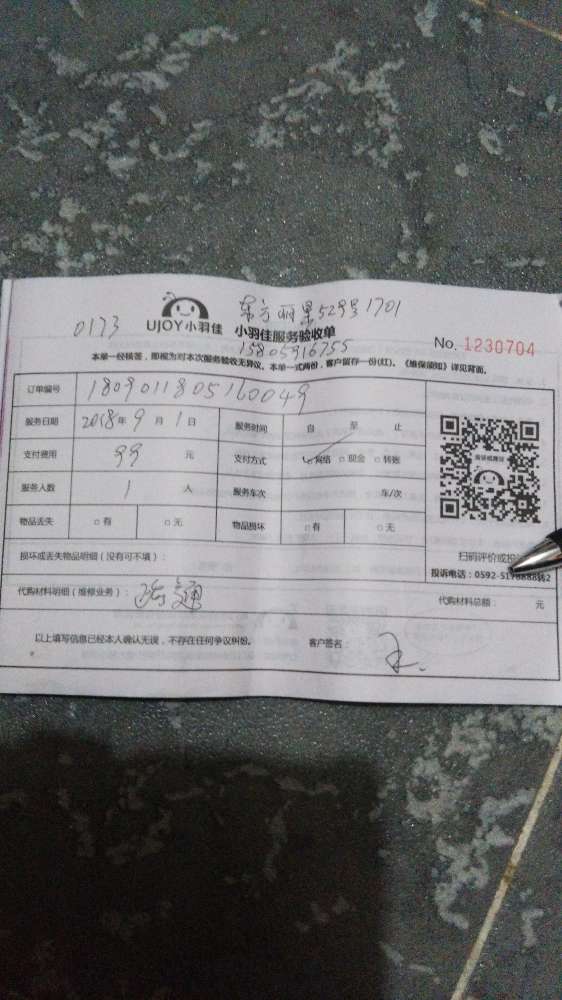 东方丽景529号1701
0173 UJOY小羽佳 小羽佳服务验收单
15805916755
No. 1230704
本单一经核签，即视为对本次服务验收无异议。本单一式两份，客户留存一份(红)。《维保须知》详见背面。
订单编号 1809011805160049
服务日期 2018年 9 月 1 日 服务时间 自 至 止
支付费用 99 元 支付方式 ☑网络 □现金 □转账
服务人数 1 人 服务车次 车/次
物品丢失 □有 □无 物品损坏 □有 □无
扫码评价或投
损坏或丢失物品明细（没有可不填）：
投诉电话：0592-5178888转2
代购材料明细（维修业务）： 疏通 代购材料总额： 元
以上填写信息已经本人确认无误，不存在任何争议纠纷。 客户签名：